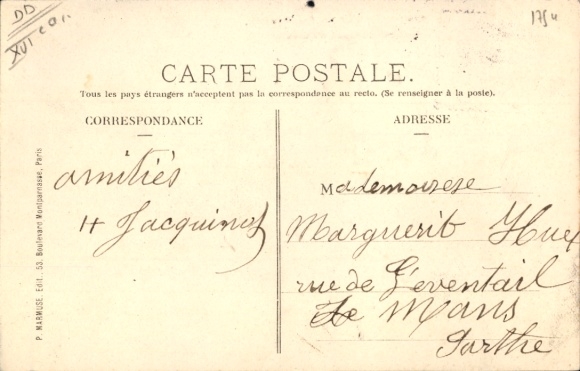 DD
XVI e arr.
1754
CARTE POSTALE.
Tous les pays étrangers n'acceptent pas la correspondance au recto. (Se renseigner à la poste).
CORRESPONDANCE
amitiés
H Jacquinot
P. MARMUSE, Edit., 53, Boulevard Montparnasse, Paris
ADRESSE
Mademoisese
Marguerit Huet
rue de L'éventail
Le Mans
Sarthe